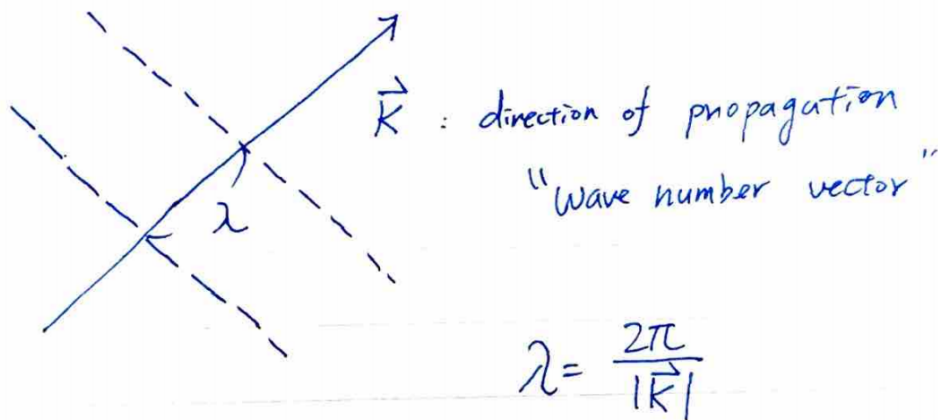 $\vec{K}$ : direction of propagation
"Wave number vector"
λ
$\lambda = \frac{2\pi}{|\vec{K}|}$